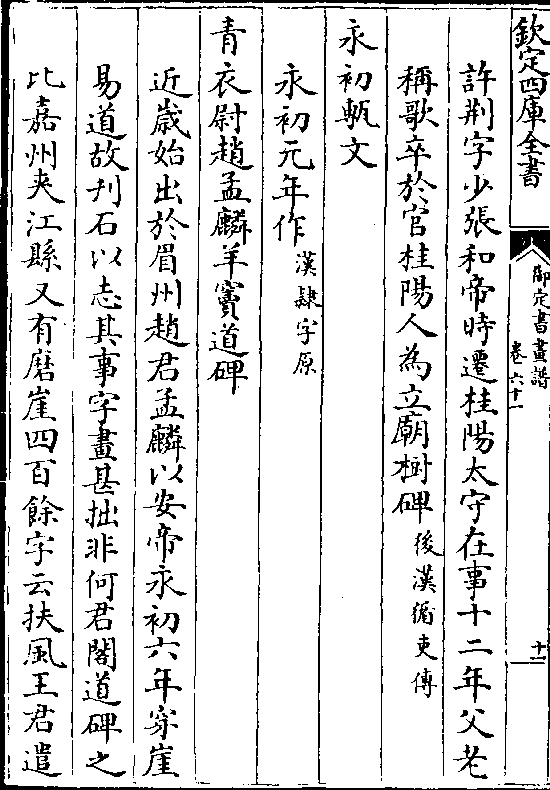 欽定四庫全書
御定書畫譜
卷六十一
十一
許荆字少張和帝時遷桂陽太守在事十二年父老
稱歌卒於官桂陽人為立廟樹碑後漢循吏傳
永初甎文
永初元年作漢隷字原
青衣尉趙孟麟羊竇道碑
近歲始出於眉州趙君孟麟以安帝永初六年穿崖
易道故刋石以志其事字畫甚拙非何君閣道碑之
比嘉州夾江縣又有磨崖四百餘字云扶風王君遣